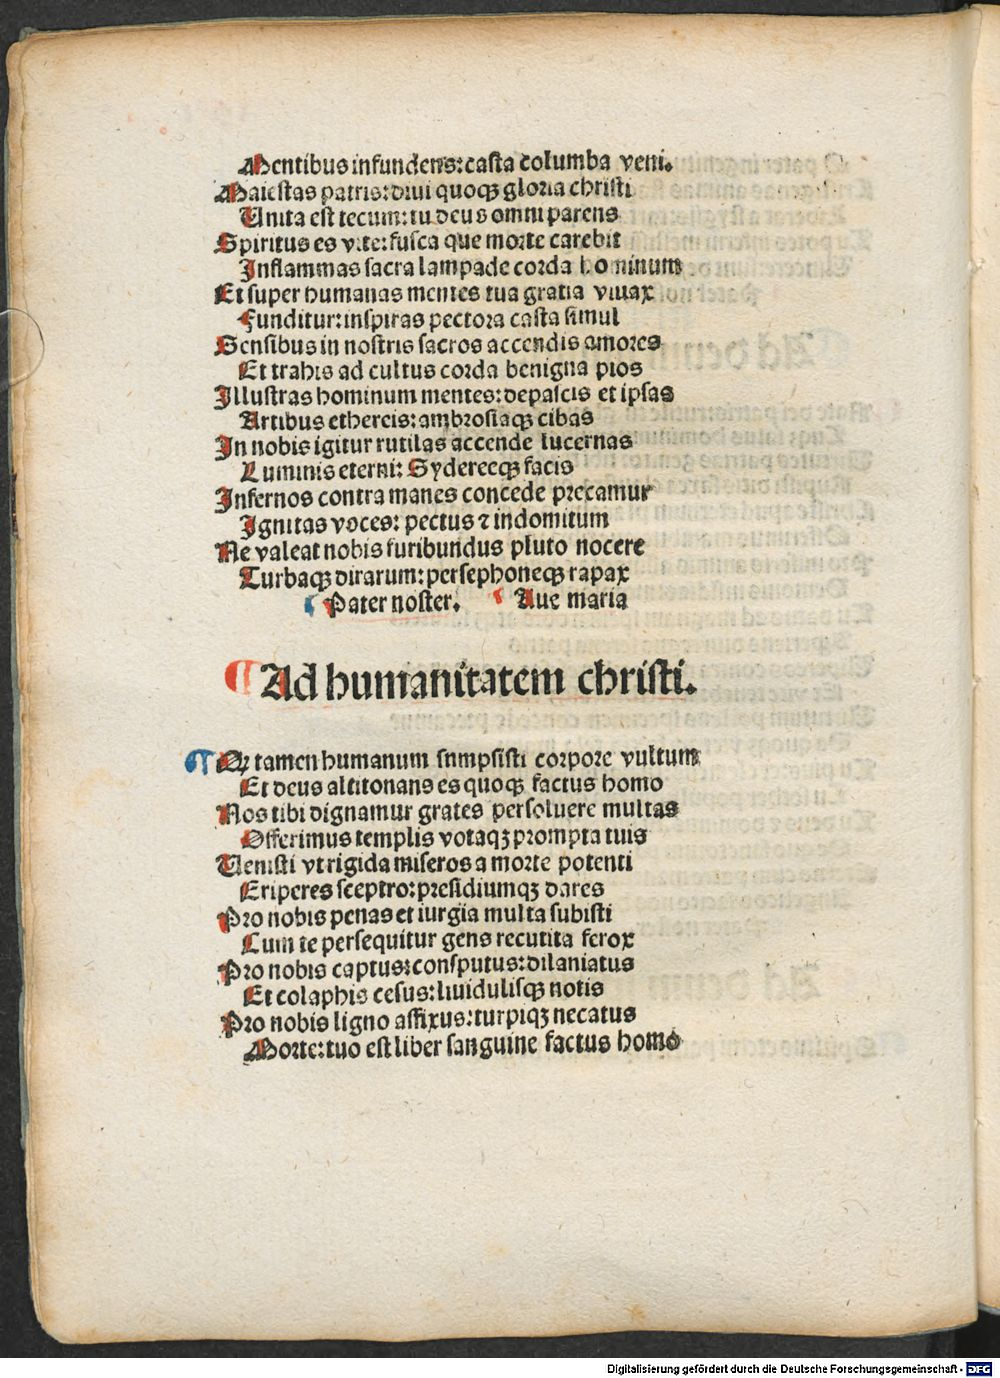 Mentibus infundens: casta columba veni.
Maiestas patris: diui quoqꝫ gloria christi
Unita est tecum: tu deus omni parens
Spiritus es vite: fusca que morte carebit
Inflammas sacra lampade corda hominum
Et super humanas mentes tua gratia viuax
Funditur: inspiras pectora casta simul
Sensibus in nostris sacros accendis amores
Et trahis ad cultus corda benigna pios
Illustras hominum mentes: depascis et ipsas
Artibus ethereis: ambrosiaqꝫ cibas
In nobis igitur rutilas accende lucernas
Luminis eterni: Sydereeqꝫ facis
Infernos contra manes concede precamur
Ignitas voces: pectus ⁊ indomitum
Ne valeat nobis furibundus pluto nocere
Turbaqꝫ dirarum: persephoneqꝫ rapax
Pater noster. Aue maria
¶ Ad humanitatem christi.
¶ Qꝛ tamen humanum snmpsisti corpore vultum
Et deus altitonans es quoqꝫ factus homo
Nos tibi dignamur grates persoluere multas
Offerimus templis votaqꝫ prompta tuis
Uenisti vt rigida miseros a morte potenti
Eriperes sceptro: presidiumqꝫ dares
Pro nobis penas et iurgia multa subisti
Cum te persequitur gens recutita ferox
Pro nobis captus: consputus: dilaniatus
Et colaphis cesus: liuidulisqꝫ notis
Pro nobis ligno affixus: turpiqꝫ necatus
Morte: tuo est liber sanguine factus homo
Digitalisierung gefördert durch die Deutsche Forschungsgemeinschaft - DFG